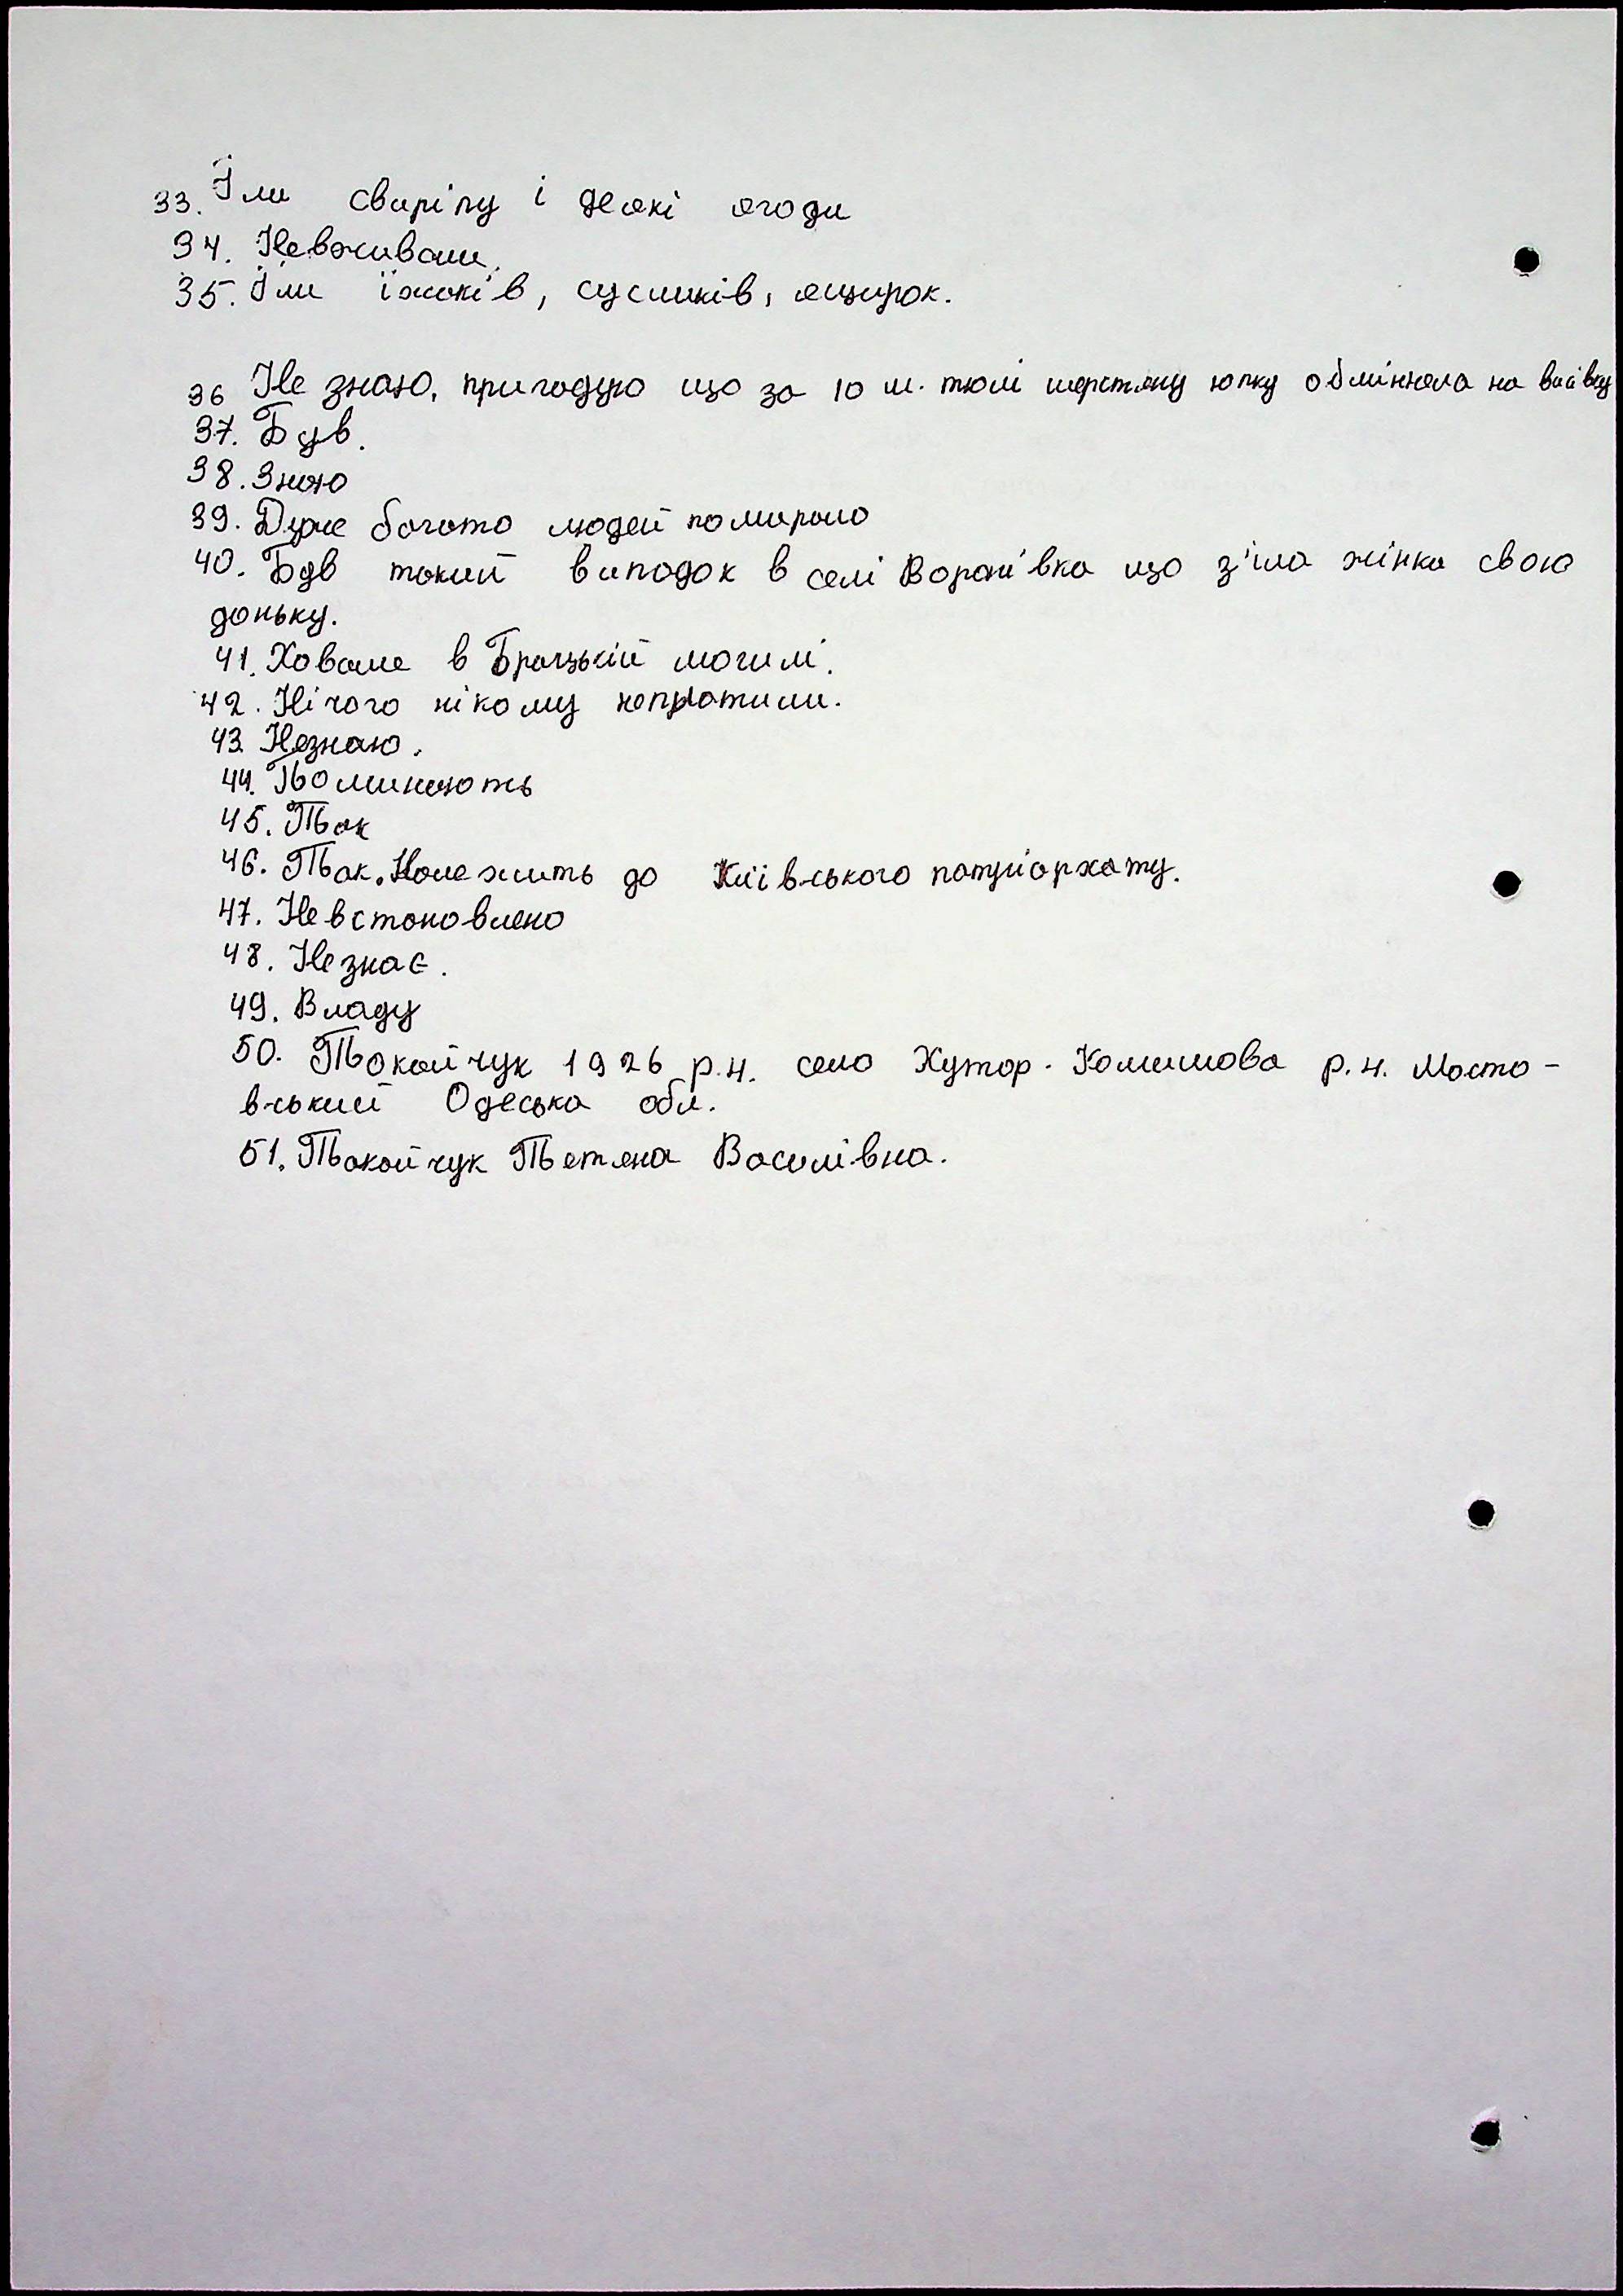 33. Їли свиріпу і деякі ягоди
34. Невживали.
35. Їли їжаків, сусликів, ящирок.
36 Не знаю, пригадую що за 10 м. тюлі шерстяну юпку обміняла на
37. Був.
38. Знаю
39. Дуже багато людей помирало
40. Був такий випадок в селі що з'їла жінка свою
доньку.
41. Ховали в Брацькій могилі.
42. Нічого нікому неплатили.
43. Незнаю.
44. Поминають
45. Так
46. Так. Належить до Київського патріархату.
47. Невстановлено
48. Незнає.
49. Владу
50. Токайчук 1926 р.н. село Хутор. Комишова р.н. Мосто-
вський Одеська обл.
51. Токайчук Тетяна Василівна.